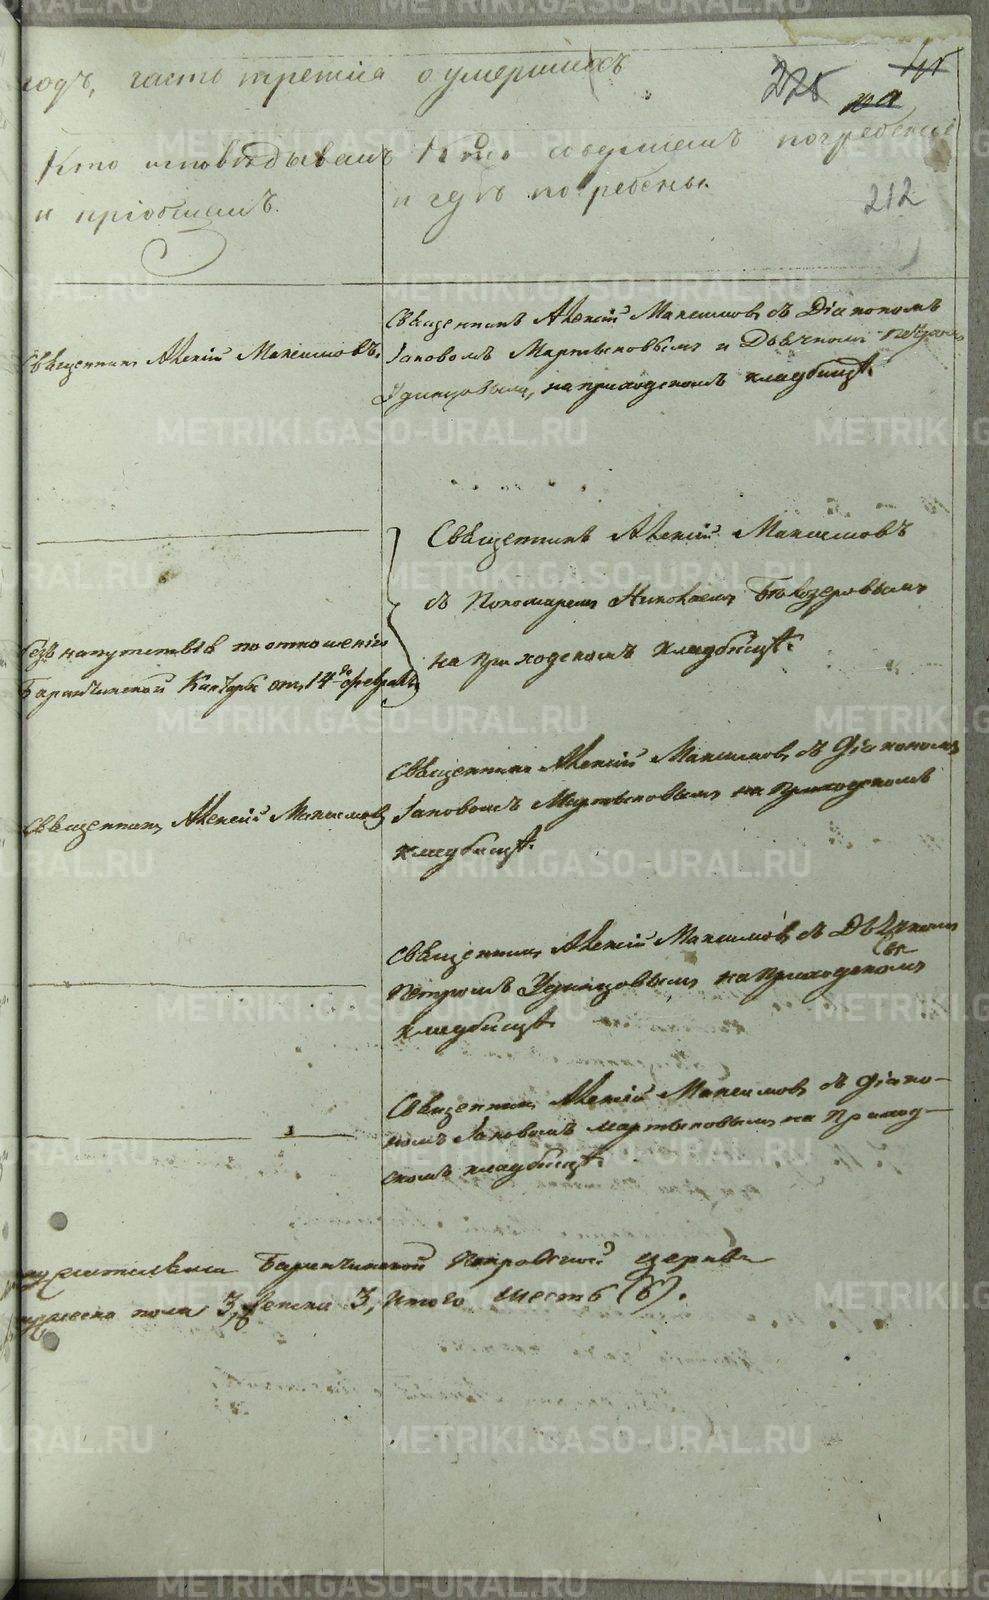 годъ, часть третіа о умершихъ
225
212
Кто исповѣдывалъ
и пріобщалъ.
Кто совершалъ погребеніе
и гдѣ погребены.
Священникъ Алексій Максимовъ,
Священникъ Алексій Максимовъ съ Діакономъ
Іаковомъ Мартыновымъ и Дьячкомъ Петромъ
Удинцовымъ, на приходскомъ кладбищѣ.
Священникъ Алексій Максимовъ
съ Пономаремъ Николаемъ Бѣлозеровымъ
на приходскомъ кладбищѣ.
безъ напутствія по отношенію
Баранчинской Конторы отъ 14го февраля
Священникъ Алексій Максимовъ
Священникъ Алексій Максимовъ съ Діакономъ
Іаковомъ Мартыновымъ на приходскомъ
кладбищѣ.
Священникъ Алексій Максимовъ съ Дьячкомъ
Петромъ Удинцовымъ на приходскомъ
кладбищѣ
Священникъ Алексій Максимовъ съ Діако-
номъ Іаковомъ Мартыновымъ на приход-
скомъ кладбищѣ.
Баранчинской Покровской церкви
мужеска пола 3, женска 3, итого шесть (6).
METRIKI.GASO-URAL.RU